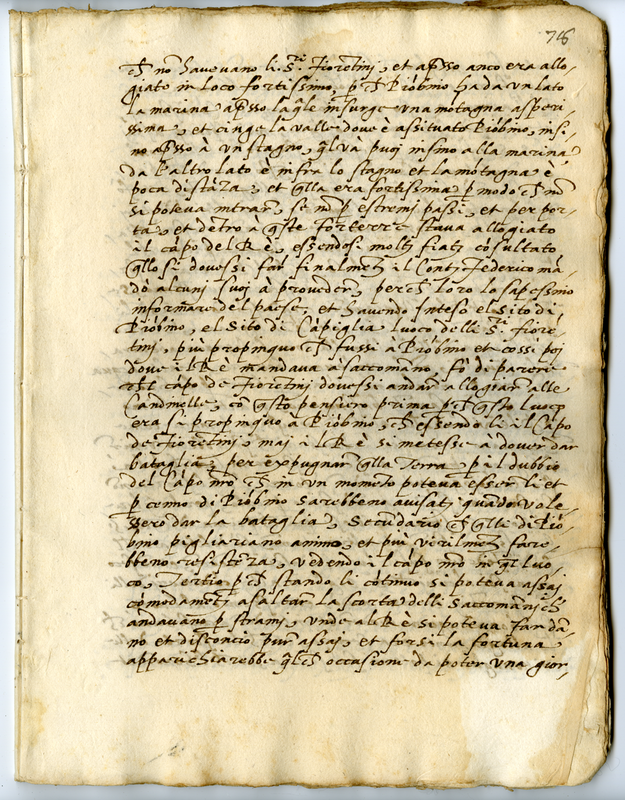 76
ch no havevano li S.ri Fiorētinj, et apsso anco era allo-
giato in loco fortissimo, p ch Piōbino ha da un lato
la marina apsso la qle insurge una mōtagna asperi
ssima, et cinge la valle dove è assituato Piōbino, insi-
no apsso à un stagno, ql và puoi insino alla marina
da l'altro lato è infra lo stagno et la mōtagna è
poca distāza, et qlla era fortissima p modo ch nō
si poteva intrar, se nō p estremi passi, et per por-
ta, et dētro à qste fortezze stava allogiato
il cāpo del Rè, essendosi moltj fiatj cōsultato
qllo si dovessi far finalmetj il Contj Federico mā-
dò alcunj suoj à proveder, perch loro lo sapessino
informare del paese, et havendo inteso el sito di
Piōbino, el sito di Cāpiglia luoco delli S.ri fiorē-
tinj, più propinquo ch fussi à Piōbino et cossi poj
dove il Rè mandava à saccomāno, fò di parere
chl cāpo de Fioretinj dovessi andar allogiar alle
Candmelle, cō qsto pensiero prima p ch qsto luoco
era sì propinquo à Piōbino, ch essendo lì il Cāpo
de Fioretinj, maj il Rè si metesse à dover dar
bataglia, per expugnar qlla Terra, p il dubbio
del Cāpo nro ch in un momēto poteva esser lì et
p cenno di Piōbino sarebbeno avisatj quādo vole-
ssero dar la bataglia, Secūdario ch qlli di Piō-
bino pigliariano animo, et più virilmetj fare-
bbeno resistēza, vedendo il cāpo nro in ql luo-
co, Tertio p ch stando lì cōtinuo si poteva assaj
cōmodametj asaltar la scorta delli saccomānj ch
andavano p stramj, unde al Rè si poteva far dā-
no et discōncio pur assaj, et forsi la fortuna
apparichiarebbe qlch occasione da poter una gior-